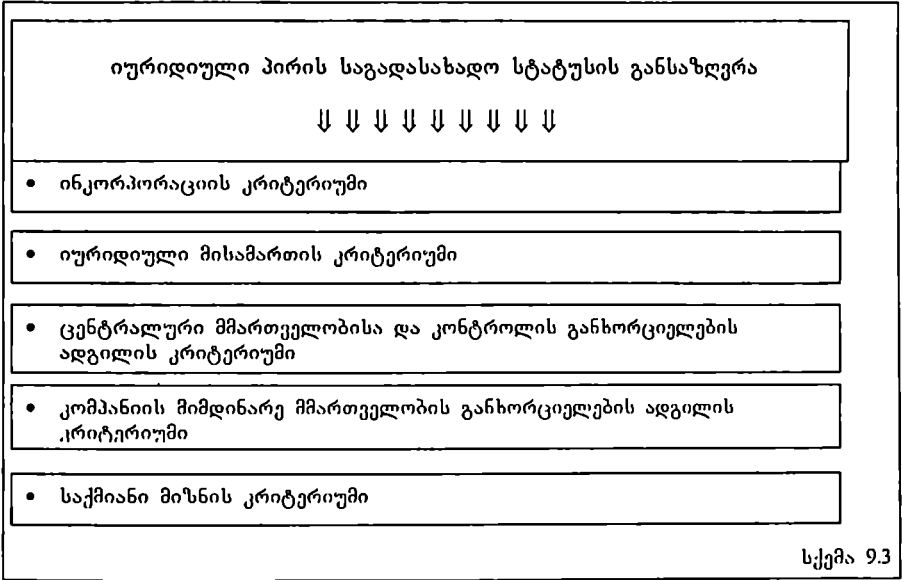 იურიდიული პირის საგადასახადო სტატუსის განსაზღვრა
⇓ ⇓ ⇓ ⇓ ⇓ ⇓ ⇓ ⇓ ⇓
• ინკორპორაციის კრიტერიუმი
• იურიდიული მისამართის კრიტერიუმი
• ცენტრალური მმართველობისა და კონტროლის განხორციელების
ადგილის კრიტერიუმი
• კომპანიის მიმდინარე მმართველობის განხორციელების ადგილის
კრიტერიუმი
• საქმიანი მიზნის კრიტერიუმი
სქემა 9.3